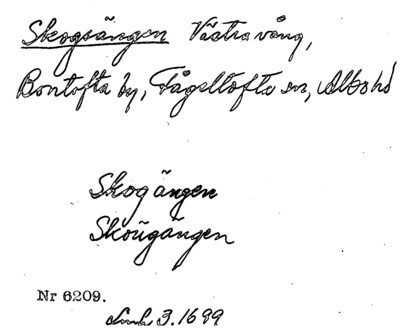 Skogsängen Västra vång,
Bontofta by, Fågeltofta sn, Albo hd
Skog ängen
Skoũgängen
Nr 6209.
3. 1699